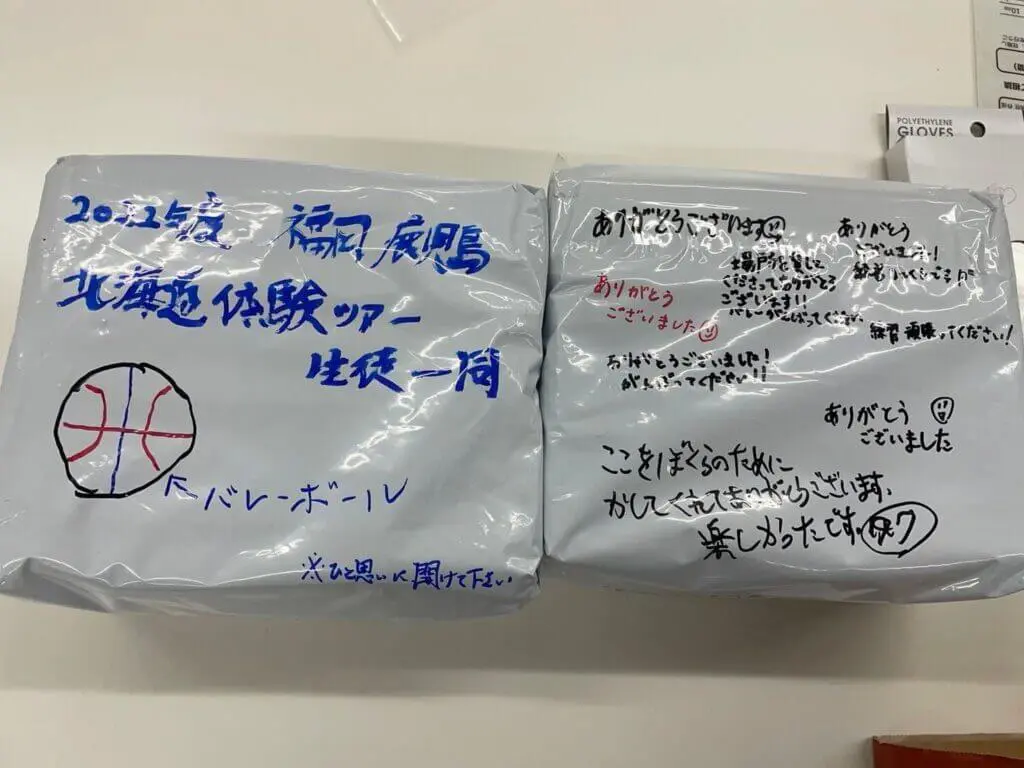 2022年度 福岡 鹿児島
北海道体験ツアー
生徒一同
←バレーボール
※ひと思いに開けて下さい
ありがとうございます
ありがとう
ございました
場所を貸して
くださってありがとう
ございます!!
バレーがんばってください
ありがとう
ございました!
練習頑張ってください!
ありがとうございました!
がんばってください!!
ありがとう
ございました
ここをぼくらのために
かしてくれてありがとうございます。
楽しかったです。
POLYETHYLENE
GLOVES